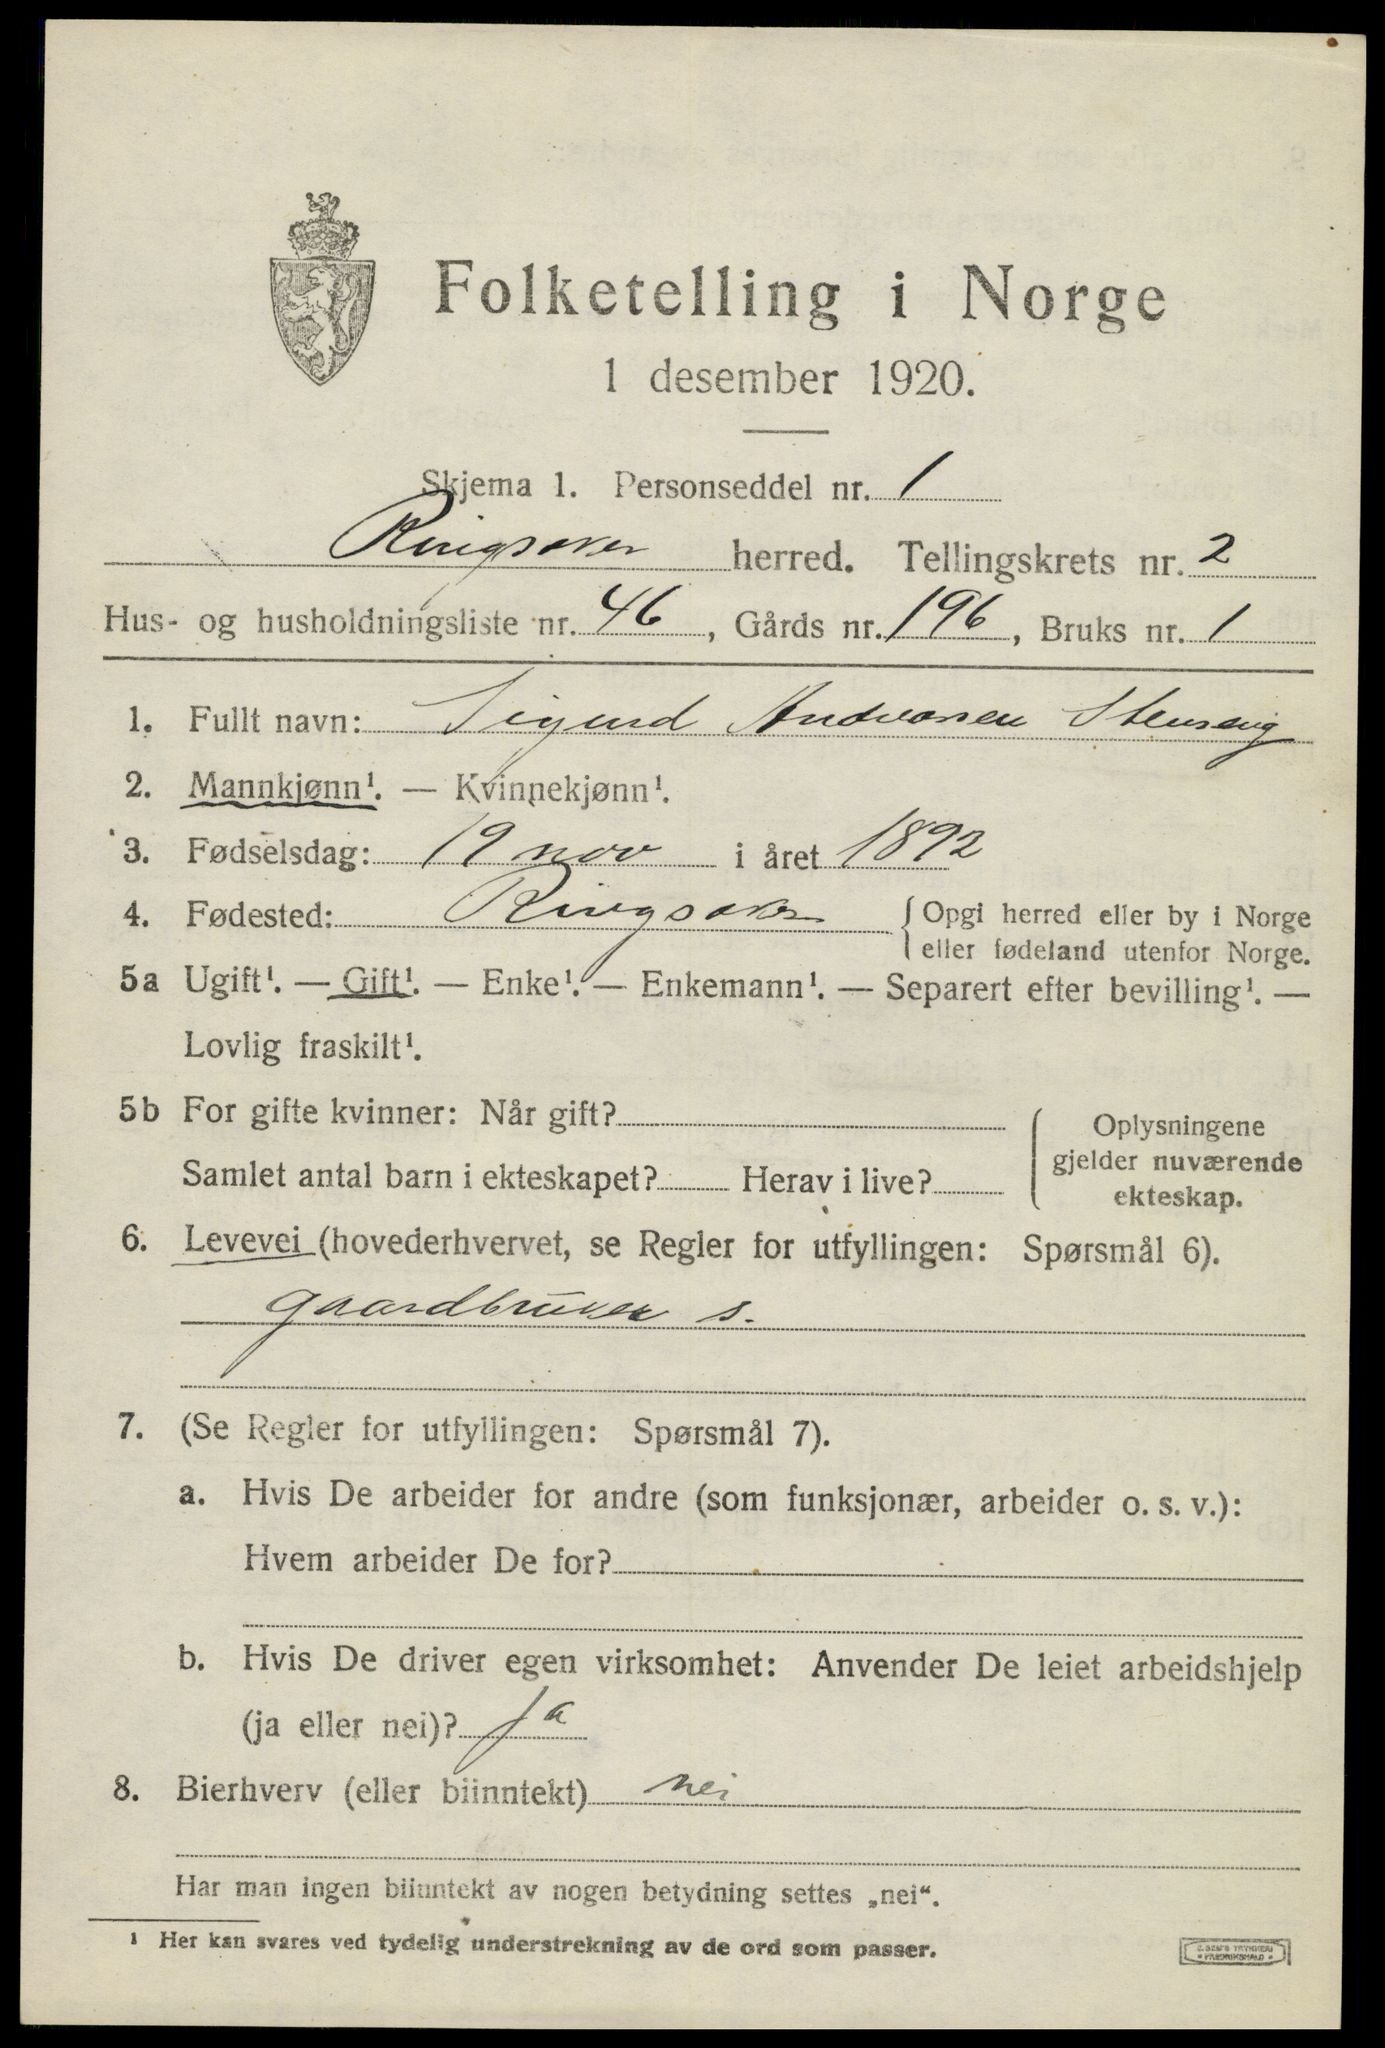 Folketelling i Norge
1 desember 1920.
Skjema 1. Personseddel nr. 1
Ringsaker herred. Tellingskrets nr. 2
Hus- og husholdningsliste nr. 46, Gårds nr. 196, Bruks nr. 1
1. Fullt navn: Sigurd Andreassen Stenseng
2. Mannkjønn¹. — Kvinnekjønn¹.
3. Fødselsdag: 19 nov i året 1892
4. Fødested: Ringsaker { Opgi herred eller by i Norge
eller fødeland utenfor Norge.
5a Ugift¹. — Gift¹. — Enke¹. — Enkemann¹. — Separert efter bevilling¹. —
Lovlig fraskilt¹.
5b For gifte kvinner: Når gift? { Oplysningene
gjelder nuværende
ekteskap.
Samlet antal barn i ekteskapet? Herav i live?
6. Levevei (hovederhvervet, se Regler for utfyllingen: Spørsmål 6).
gaardbruker s.
7. (Se Regler for utfyllingen: Spørsmål 7).
a. Hvis De arbeider for andre (som funksjonær, arbeider o. s. v.):
Hvem arbeider De for?
b. Hvis De driver egen virksomhet: Anvender De leiet arbeidshjelp
(ja eller nei)? ja
8. Bierhverv (eller biinntekt) nei
Har man ingen biinntekt av nogen betydning settes „nei“.
¹ Her kan svares ved tydelig understrekning av de ord som passer.